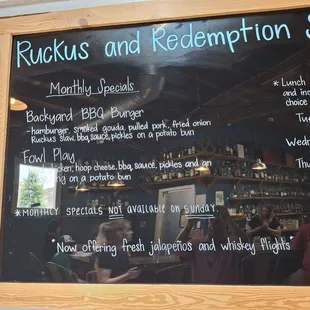 Ruckus and Redemption S
Monthly Specials
Backyard BBQ Burger
-hamburger, smoked gouda, pulled pork, fried onion
Ruckus slaw, bbq sauce, pickles on a potato bun
Fowl Play
cken, hoop cheese, bbq, sauce, pickles and an
on a potato bun
*Monthly specials NOT available on SUNDAY
*Now offering fresh jalapeños and whiskey flights*
*Lunch
and inc
choice
Tue
Wedn
Thurs